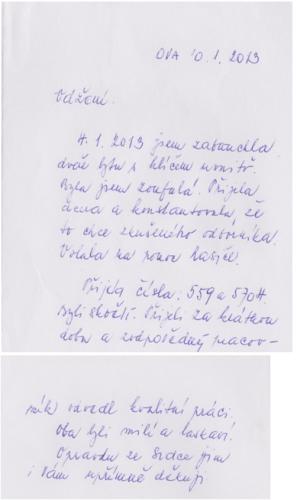 OVA 10.1.2013
Vážení.
4.1.2013 jsem zabouchla
dveř bytu s klíčem uvnitř.
Byla jsem zoufalá. Přijela
dcera a konstatovala, že
to chce zkušeného odborníka.
Volala na pomoc hasiče.
Přijela čísla: 559 a 5704.
Byli skvělí. Přijeli za krátkou
dobu a zodpovědný pracov-
ník odvedl kvalitní práci.
Oba byli milí a laskaví.
Opravdu ze srdce jim
i Vám upřímně děkuji